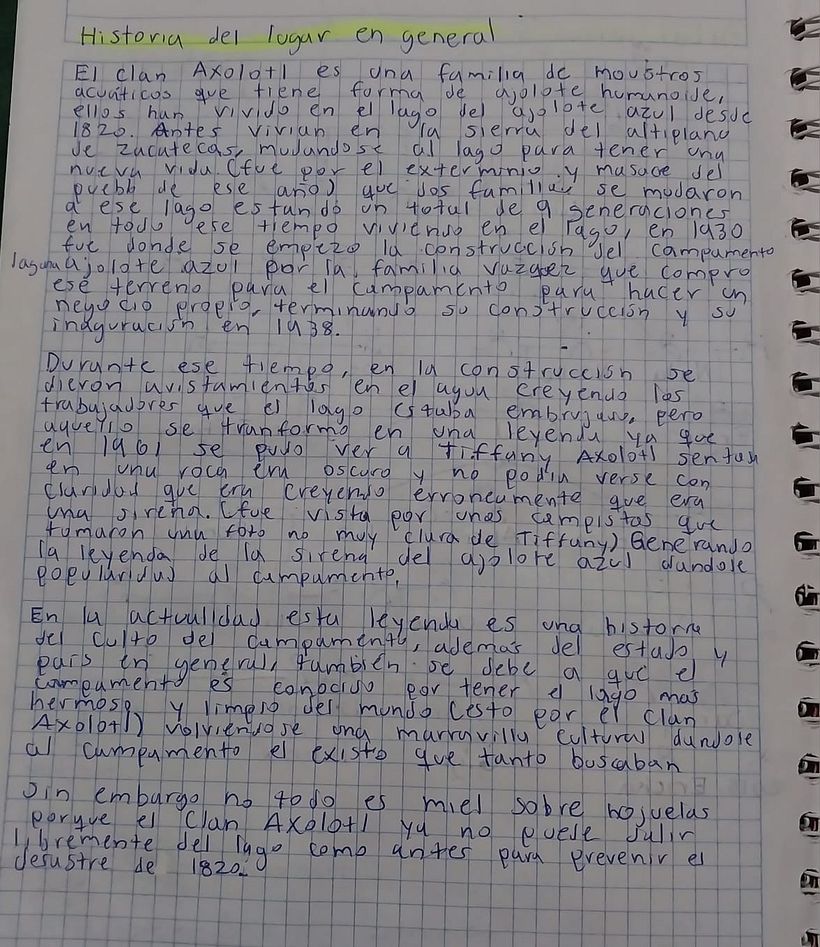 Historia del lugar en general
El clan Axolotl es una familia de moustros
acuáticos que tiene forma de ajolote humanoide,
ellos han vivido en el lago del ajolote azul desde
1820. Antes vivian en la sierra del altiplano
de zacatecas, mudandose al lago para tener una
nueva vida (fue por el exterminio y masacre del
pueblo de ese año) que dos familias se mudaron
a ese lago estando un total de 9 generaciones
en todo ese tiempo viviendo en el lago, en 1930
fue donde se empezo la construcción del campamento
laguna ajolote azul por la familia vazquez que compro
ese terreno para el campamento para hacer un
negocio propio, terminando su construcción y su
inaguración en 1938.
Durante ese tiempo, en la construcción se
dieron avistamientos en el agua creyendo los
trabajadores que el lago estaba embrujado, pero
aquello se tranformo en una leyenda ya que
en 1961 se pudo ver a Tiffany Axolotl sentada
en una roca era oscuro y no podia verse con
claridad que era creyendo erroneamente que era
una sirena. (fue vista por unos campistas que
tomaron una foto no muy clara de Tiffany) Generando
la leyenda de la sirena del ajolote azul dandole
popularidad al campamento.
En la actualidad esta leyenda es una historia
del culto del campamento, ademas del estado y
pais en general, tambien se debe a que el
campamento es conocido por tener el lago mas
hermoso y limpio del mundo (esto por el clan
Axolotl) volviendose una marravilla cultural dandole
al campamento el existo que tanto buscaban
Sin embargo no todo es miel sobre hojuelas
porque el clan Axolotl ya no puede salir
libremente del lago como antes para prevenir el
desastre de 1820.